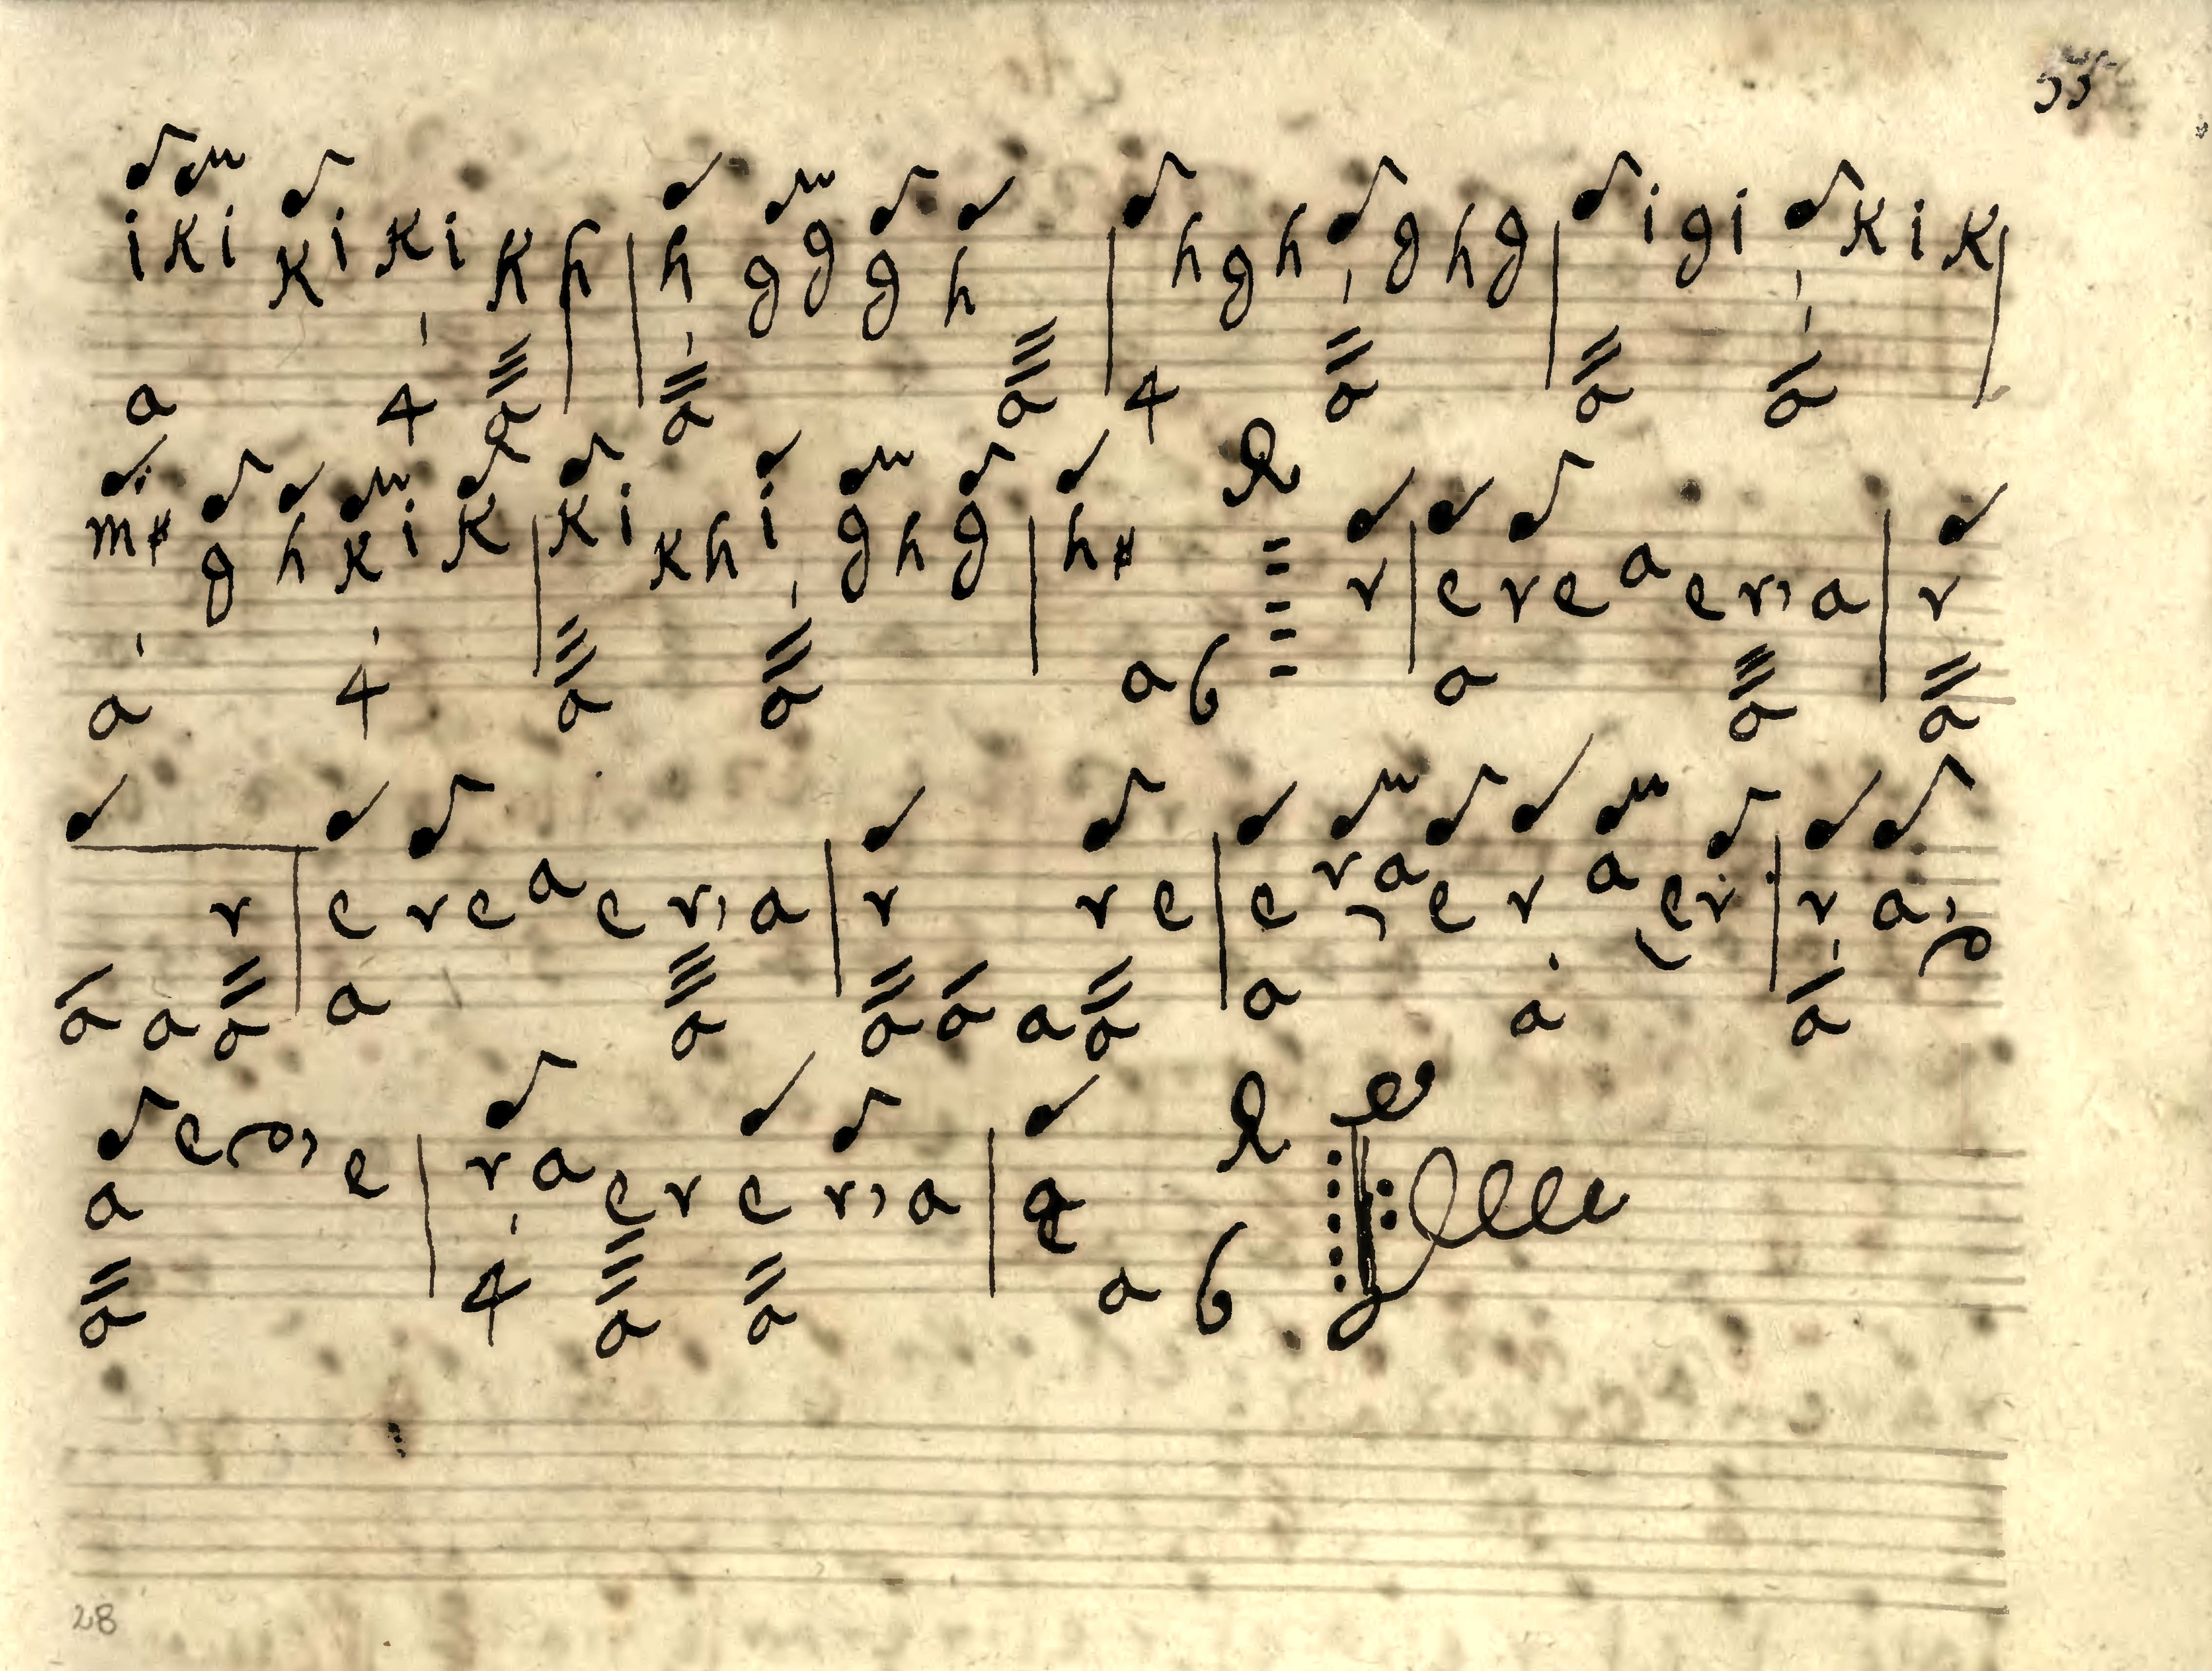 55
i k i k i k i k h h g g g h h g h g h g i g i k i k
a 4 a a a 4 a a a
m# g h k i k k i k h i g h g h# r e r e a e r a r
a 4 a a a 6 a a a
r e r e a e r a r r e e r a e r a e r r a
a a a a a a a a a a a a
e e
a r a e r e r a a
a 4 a a a 6
28